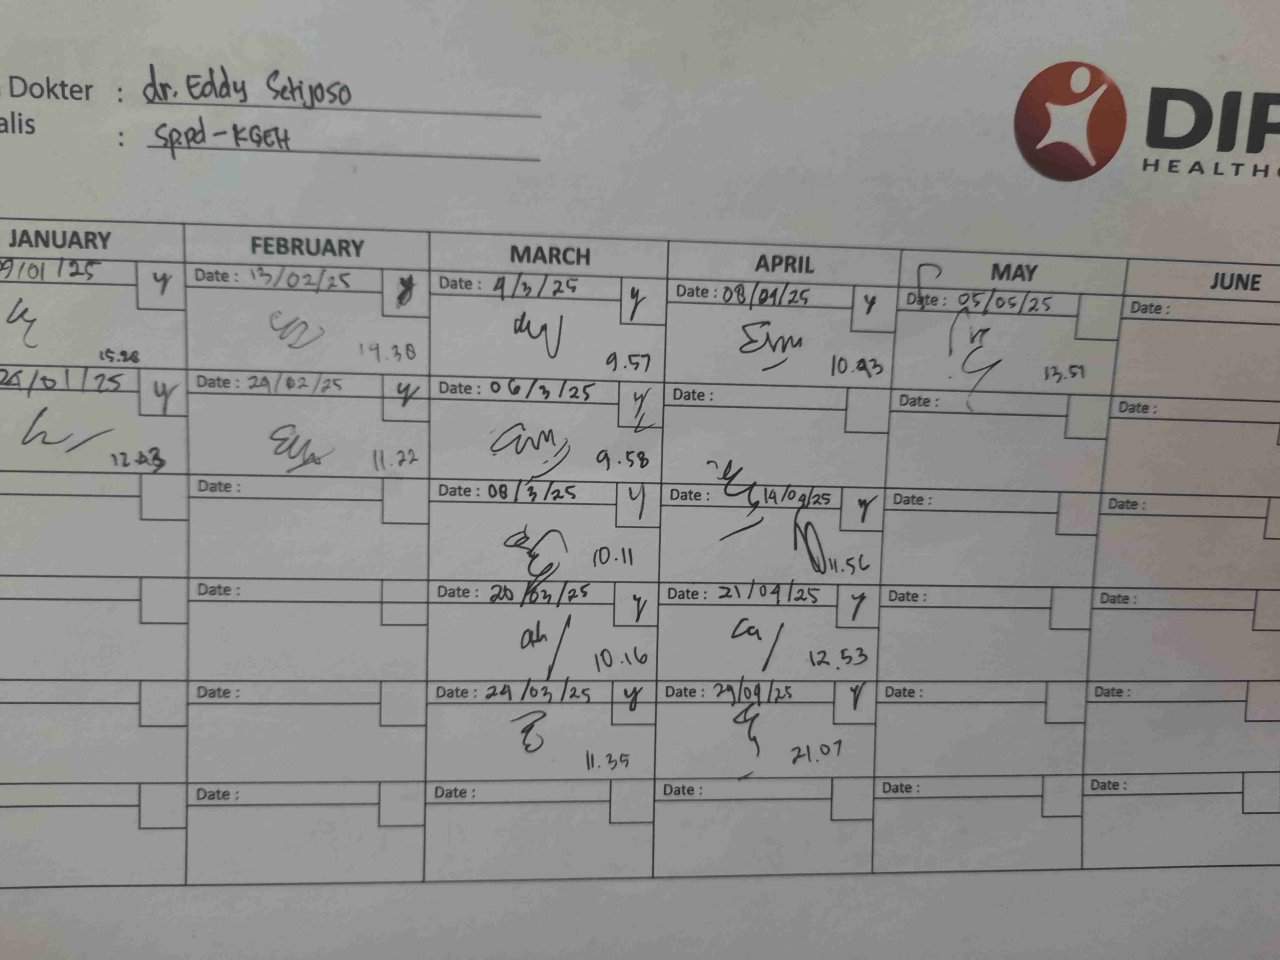 Dokter : dr. Eddy Setijoso
alis : Sp.Pd-KGEH
DIP
HEALTHC
JANUARY FEBRUARY MARCH APRIL MAY JUNE
9/01/25 y Date : 13/02/25 y Date : 4/3/25 y Date : 08/04/25 y Date : 05/05/25 Date :
15.28 14.38 9.57 10.43 13.51
/01/25 y Date : 24/02/25 y Date : 06/3/25 y Date : Date : Date :
12.43 11.22 9.58
Date : Date : 08/3/25 y Date : 14/04/25 y Date : Date :
10.11 11.56
Date : Date : 20/03/25 y Date : 21/04/25 y Date : Date :
10.16 12.53
Date : Date : 24/03/25 y Date : 29/04/25 y Date : Date :
11.35 21.07
Date : Date : Date : Date : Date :